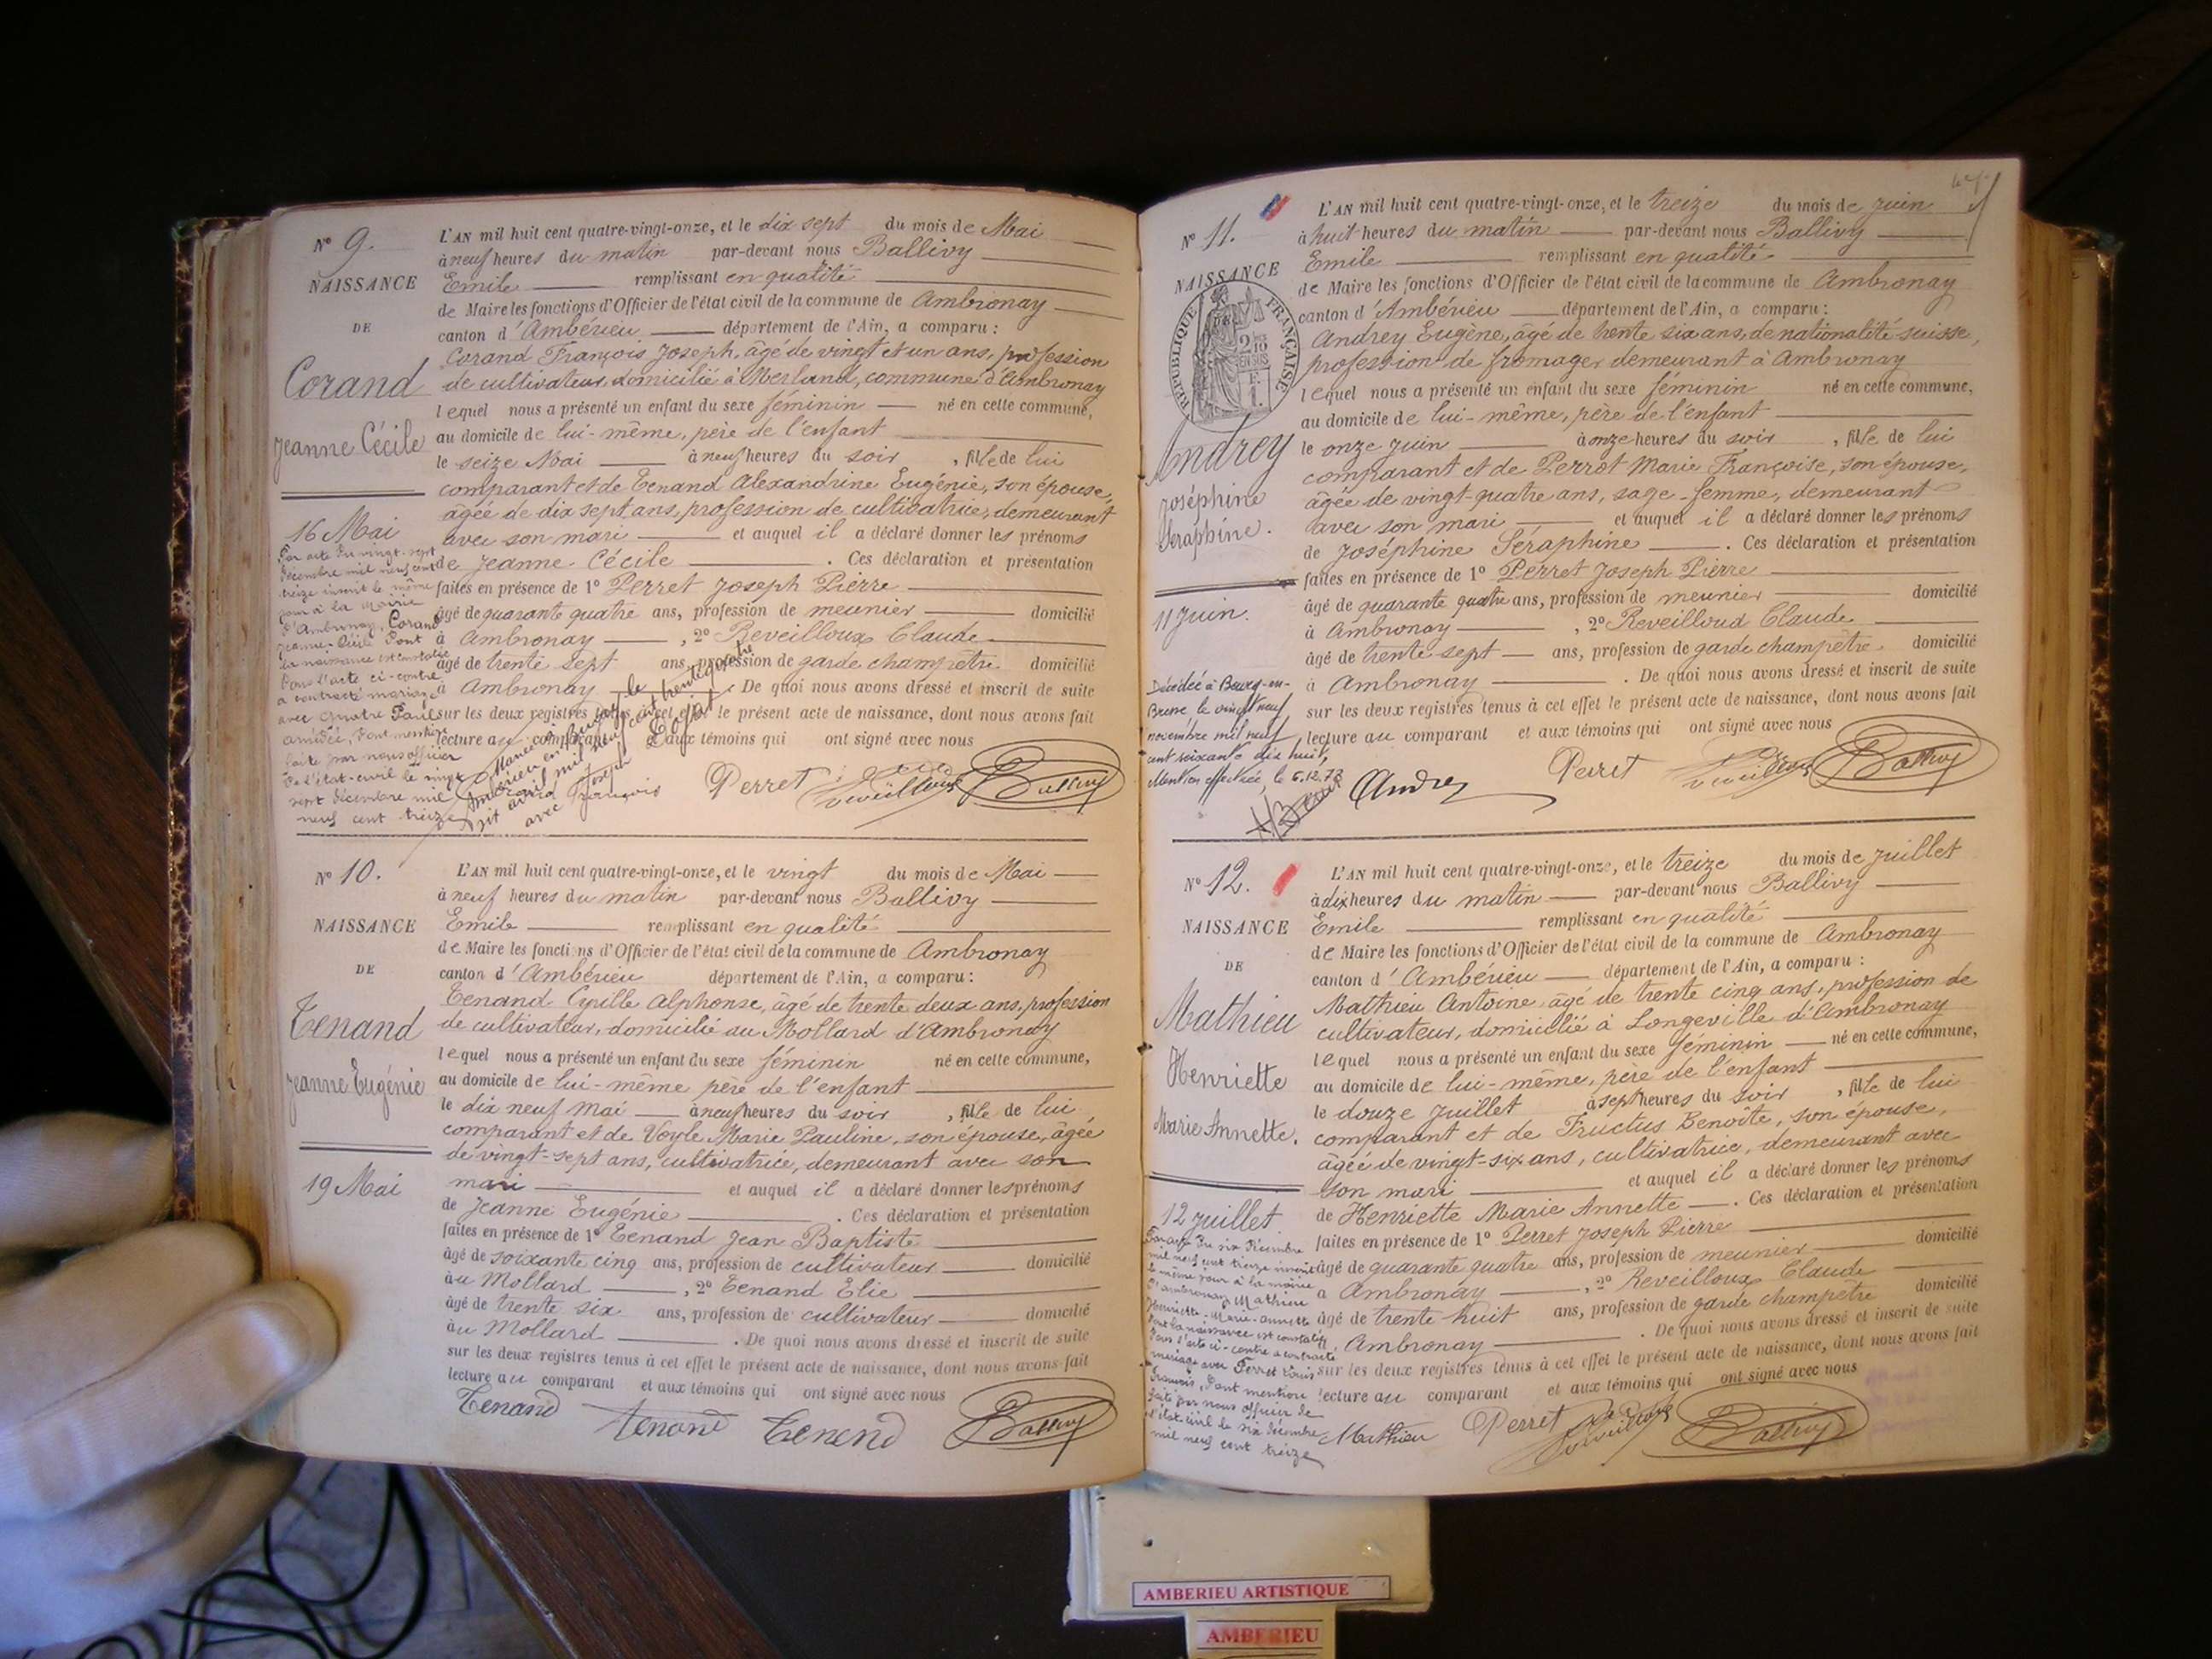 N° 9.
NAISSANCE
DE
Corand
Jeanne Cécile
16 Mai
Par acte du vingt-sept
décembre mil neuf cent
treize inscrit le même
jour à la mairie
d'Ambronay, Corand
Jeanne-Cécile dont
la naissance est constatée
dans l'acte ci-contre
a contracté mariage
avec Paul
amédée, dont mention
faite par nous officier
de l'état-civil le vingt
sept décembre mil
neuf cent treize
L'AN mil huit cent quatre-vingt-onze, et le dix sept du mois de Mai
à neuf heures du matin par-devant nous Ballivy
Emile remplissant en qualité
de Maire les fonctions d'Officier de l'état civil de la commune de Ambronay
canton d'Ambérieu département de l'Ain, a comparu :
Corand François Joseph, âgé de vingt et un ans, profession
de cultivateur domicilié à Merland, commune d'Ambronay
lequel nous a présenté un enfant du sexe féminin né en cette commune,
au domicile de lui-même, père de l'enfant
le seize Mai à neuf heures du soir, fille de lui
comparant et de Tenand Alexandrine Eugénie, son épouse,
âgée de dix sept ans, profession de cultivatrice, demeurant
avec son mari et auquel il a déclaré donner les prénoms
de Jeanne Cécile . Ces déclaration et présentation
faites en présence de 1° Perret Joseph Pierre
âgé de quarante quatre ans, profession de meunier domicilié
à Ambronay , 2° Reveilloux Claude
âgé de trente sept ans, profession de garde champêtre domicilié
à Ambronay . De quoi nous avons dressé et inscrit de suite
sur les deux registres tenus à cet effet le présent acte de naissance, dont nous avons fait
lecture au comparant et aux témoins qui ont signé avec nous
avril mil neuf cent trente
avec Joseph
François
Perret Reveilloux Ballivy
N° 10.
NAISSANCE
DE
Tenand
Jeanne Eugénie
19 Mai
L'AN mil huit cent quatre-vingt-onze, et le vingt du mois de Mai
à neuf heures du matin par-devant nous Ballivy
Emile remplissant en qualité
de Maire les fonctions d'Officier de l'état civil de la commune de Ambronay
canton d'Ambérieu département de l'Ain, a comparu :
Tenand Cyrille Alphonse, âgé de trente deux ans, profession
de cultivateur, domicilié au Mollard d'Ambronay
lequel nous a présenté un enfant du sexe féminin né en cette commune,
au domicile de lui-même père de l'enfant
le dix neuf Mai à neuf heures du soir, fille de lui
comparant et de Voyle Marie Pauline, son épouse, âgée
de vingt-sept ans, cultivatrice, demeurant avec son
mari et auquel il a déclaré donner les prénoms
de Jeanne Eugénie . Ces déclaration et présentation
faites en présence de 1° Tenand Jean Baptiste
âgé de soixante cinq ans, profession de cultivateur domicilié
au Mollard , 2° Tenand Elie
âgé de trente six ans, profession de cultivateur domicilié
au Mollard . De quoi nous avons dressé et inscrit de suite
sur les deux registres tenus à cet effet le présent acte de naissance, dont nous avons fait
lecture au comparant et aux témoins qui ont signé avec nous
Tenand Tenand Tenand Ballivy
N° 11.
NAISSANCE
RÉPUBLIQUE FRANÇAISE
Andrey
Joséphine
Séraphine.
11 Juin.
Décédée à Bourg-en-
Bresse, le vingt neuf
novembre mil neuf
cent soixante dix huit,
Mention effectuée, le 6.12.78
L'AN mil huit cent quatre-vingt-onze, et le treize du mois de juin
à huit heures du matin par-devant nous Ballivy
Emile remplissant en qualité
de Maire les fonctions d'Officier de l'état civil de la commune de Ambronay
canton d'Ambérieu département de l'Ain, a comparu :
Andrey Eugène, âgé de trente six ans, de nationalité suisse,
profession de fromager demeurant à Ambronay
lequel nous a présenté un enfant du sexe féminin né en cette commune,
au domicile de lui-même, père de l'enfant
le onze juin à onze heures du soir, fille de lui
comparant et de Perrot Marie Françoise, son épouse,
âgée de vingt-quatre ans, sage-femme, demeurant
avec son mari et auquel il a déclaré donner les prénoms
de Joséphine Séraphine . Ces déclaration et présentation
faites en présence de 1° Perret Joseph Pierre
âgé de quarante quatre ans, profession de meunier domicilié
à Ambronay , 2° Reveilloud Claude
âgé de trente sept ans, profession de garde champêtre domicilié
à Ambronay . De quoi nous avons dressé et inscrit de suite
sur les deux registres tenus à cet effet le présent acte de naissance, dont nous avons fait
lecture au comparant et aux témoins qui ont signé avec nous
Andrey Perret Reveilloux Ballivy
N° 12.
NAISSANCE
DE
Mathieu
Henriette
Marie Annette.
12 juillet
Par acte du six décembre
mil neuf cent treize inscrit
le même jour à la mairie
d'Ambronay, Mathieu
Henriette-Marie-Annette
dont la naissance est constatée
dans l'acte ci-contre a contracté
mariage avec Ferret Louis
François, dont mention
faite par nous officier de
l'état-civil le six décembre
mil neuf cent treize
L'AN mil huit cent quatre-vingt-onze, et le treize du mois de juillet
à dix heures du matin par-devant nous Ballivy
Emile remplissant en qualité
de Maire les fonctions d'Officier de l'état civil de la commune de Ambronay
canton d'Ambérieu département de l'Ain, a comparu :
Mathieu Antoine, âgé de trente cinq ans, profession de
cultivateur, domicilié à Longeville d'Ambronay
lequel nous a présenté un enfant du sexe féminin né en cette commune,
au domicile de lui-même, père de l'enfant
le douze juillet à sept heures du soir, fille de lui
comparant et de Fructus Benoîte, son épouse,
âgée de vingt-six ans, cultivatrice, demeurant avec
son mari et auquel il a déclaré donner les prénoms
de Henriette Marie Annette . Ces déclaration et présentation
faites en présence de 1° Perret Joseph Pierre
âgé de quarante quatre ans, profession de meunier domicilié
à Ambronay , 2° Reveilloux Claude
âgé de trente huit ans, profession de garde champêtre domicilié
à Ambronay . De quoi nous avons dressé et inscrit de suite
sur les deux registres tenus à cet effet le présent acte de naissance, dont nous avons fait
lecture au comparant et aux témoins qui ont signé avec nous
Mathieu Perret Reveilloux Ballivy
AMBERIEU ARTISTIQUE
AMBERIEU